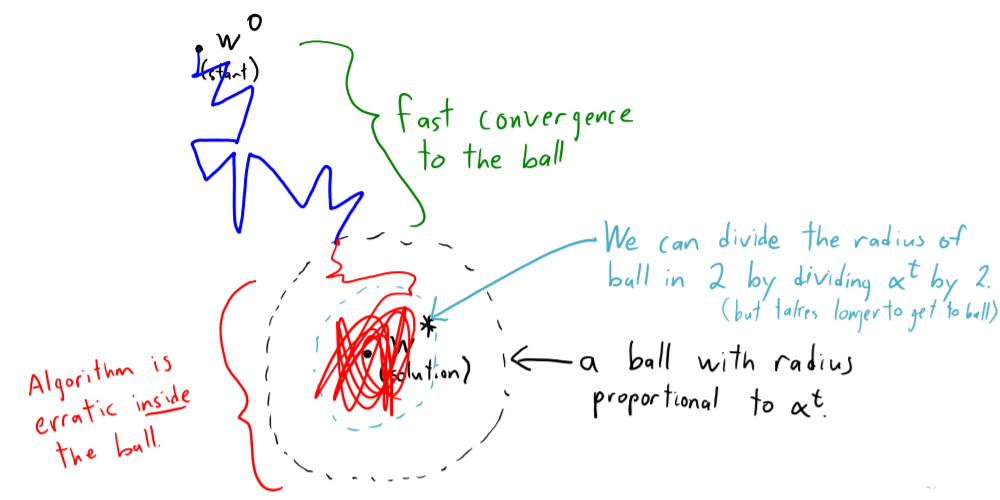 w⁰
(start)
fast convergence
to the ball
We can divide the radius of
ball in 2 by dividing αᵗ by 2.
(but takes longer to get to ball)
w*
(solution)
a ball with radius
proportional to αᵗ.
Algorithm is
erratic inside
the ball.